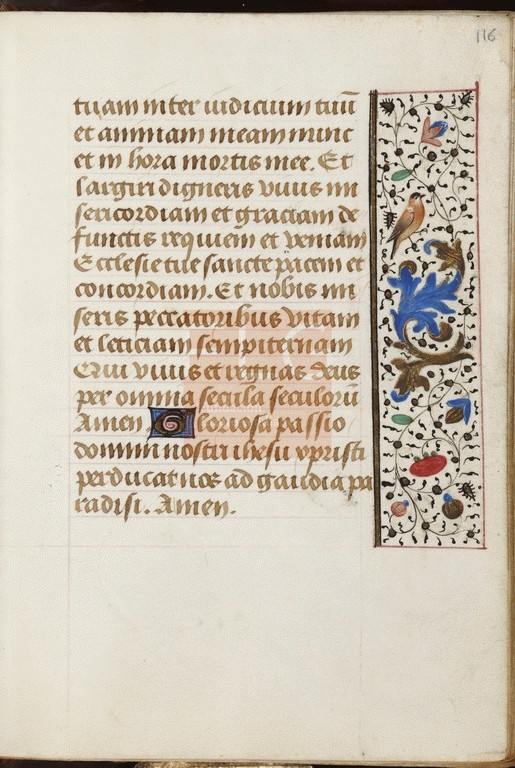 116
tuam inter iudicium tuū
et animam meam nunc
et in hora mortis mee. Et
largiri digneris viuis mi
sericordiam et graciam de
functis requiem et veniam
Ecclesie tue sancte pacem et
concordiam. Et nobis mi
seris peccatoribus vitam
et leticiam sempiternam
Qui viuis et regnas deus
per omnia secula seculorū
Amen. Gloriosa passio
domini nostri ihesu xpristi
perducat nos ad gaudia pa
radisi. Amen.